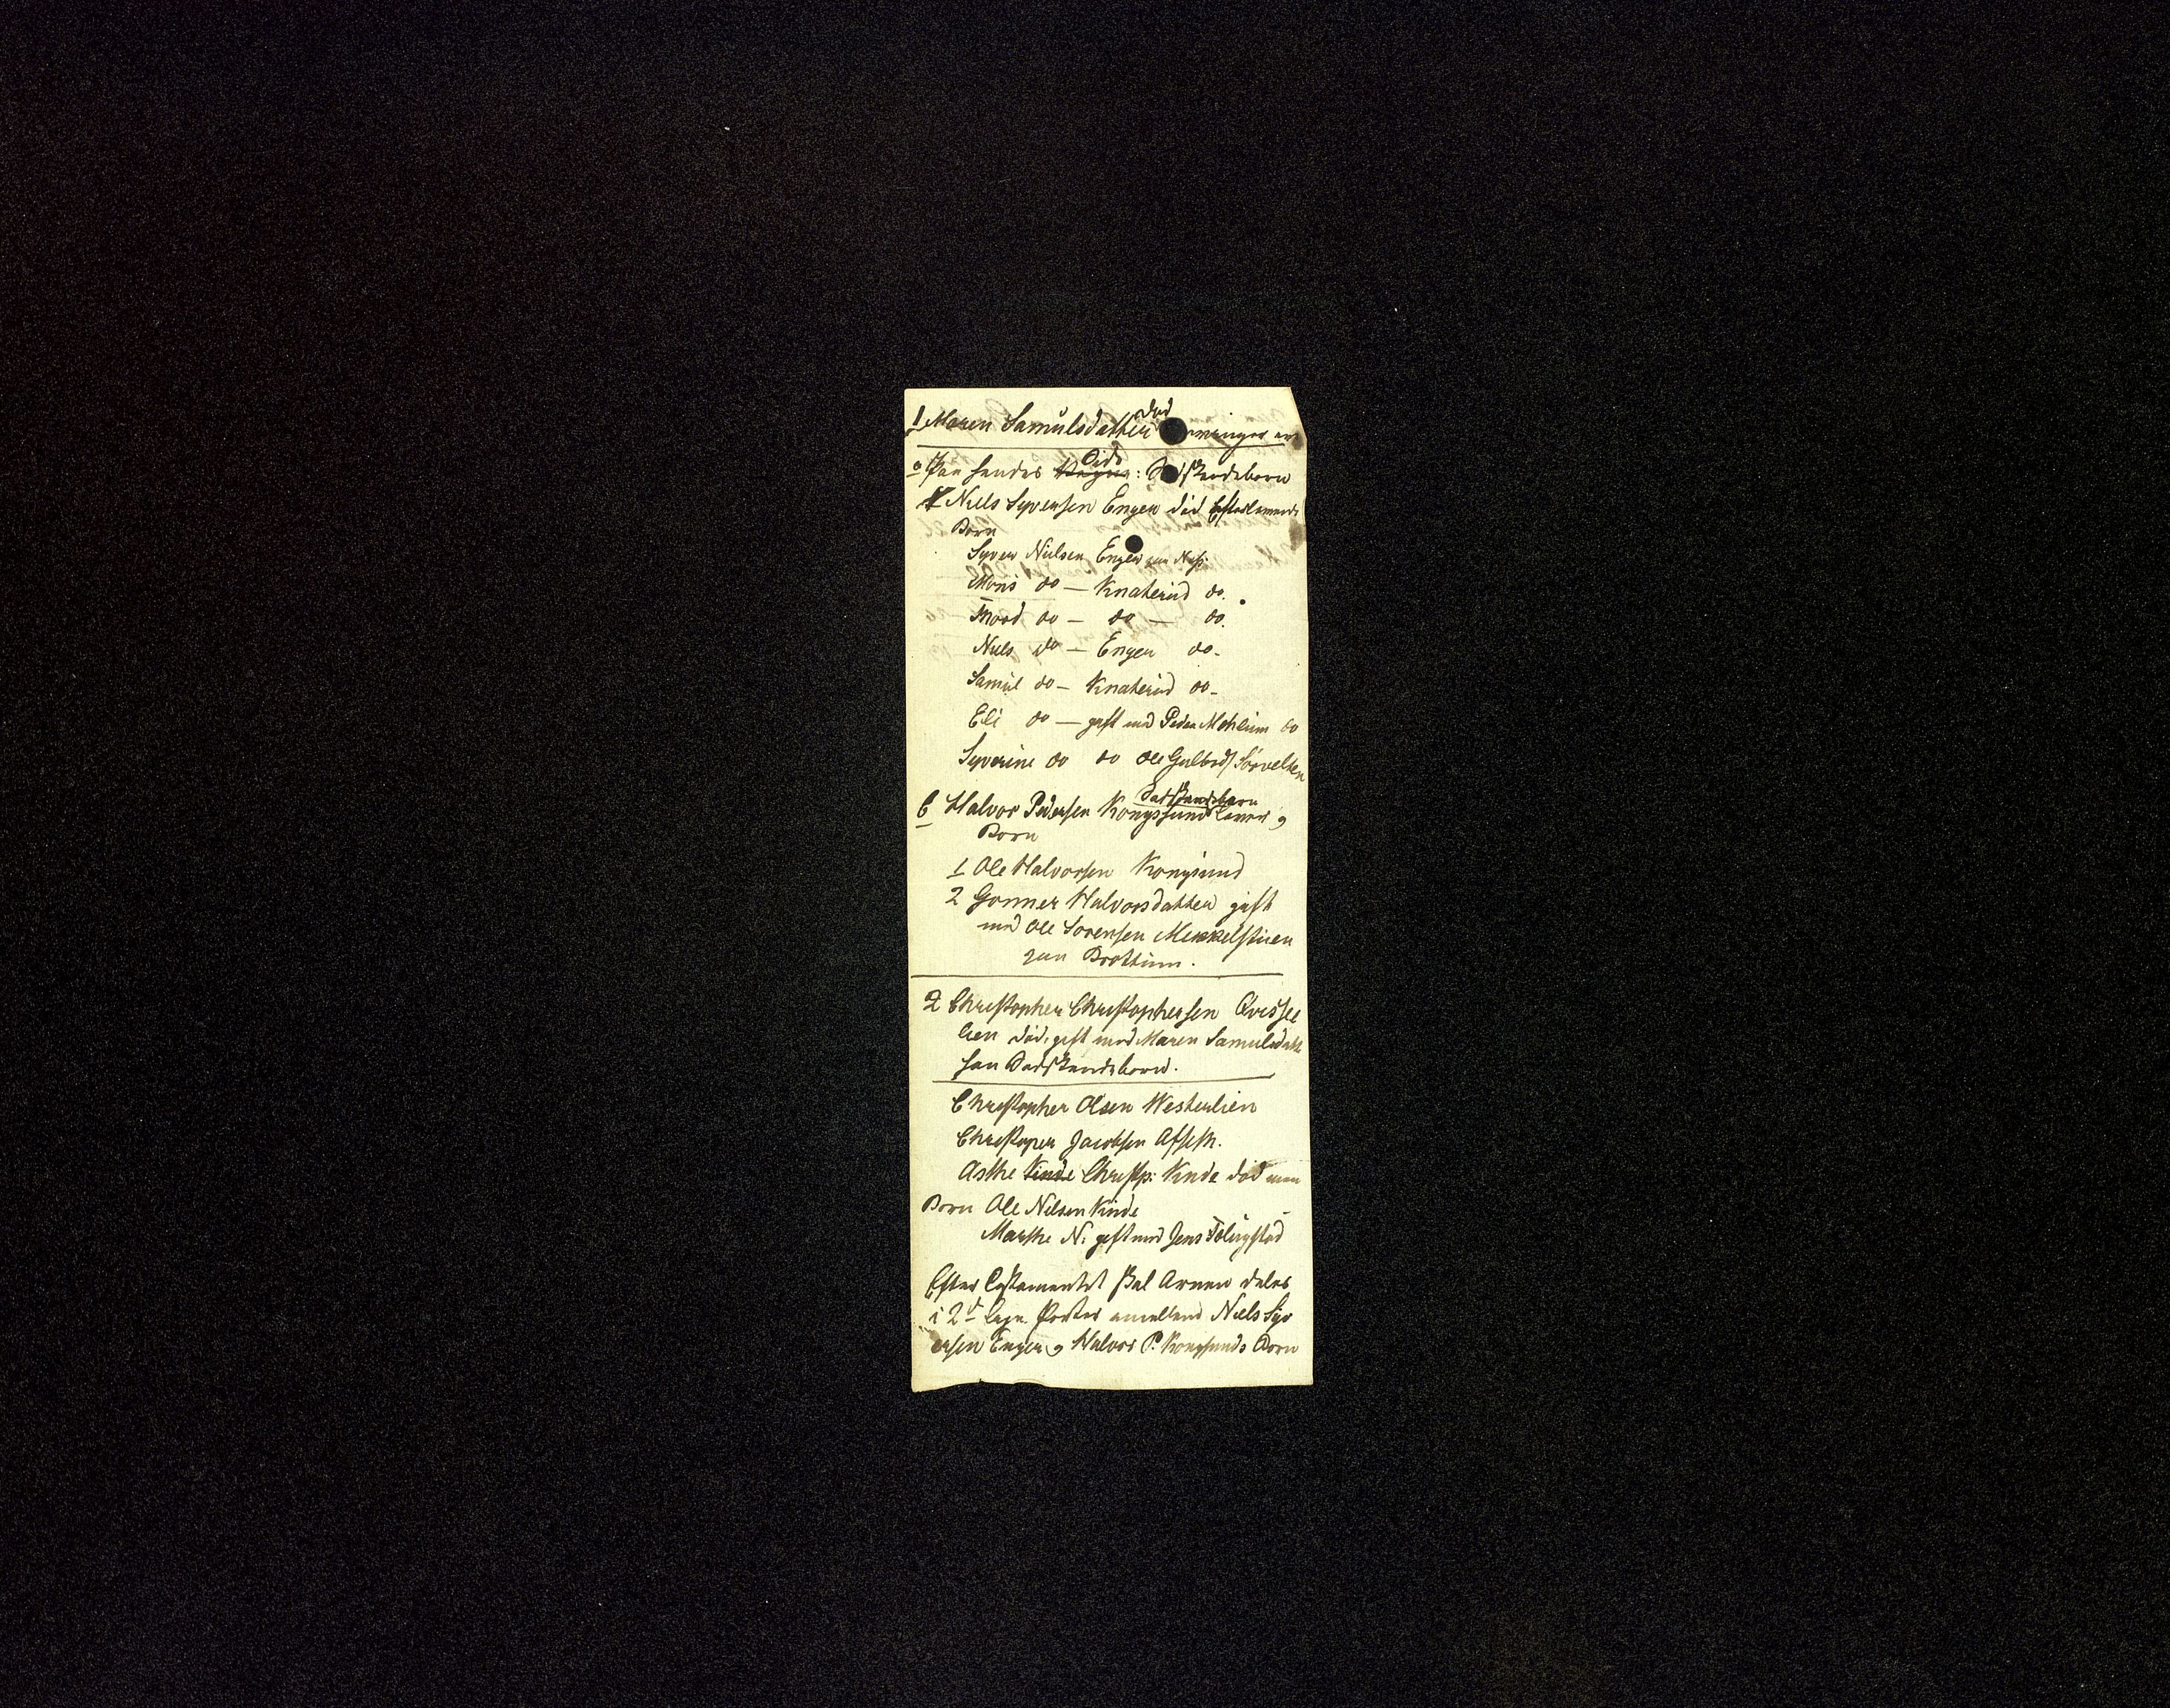 1 Maren Samulsdatter död
a Paa hendes Side: Sødskendebørn
Niels Syversen Enger död efterlevende
Born
Syver Nielsen Enger paa Næs:
Mons do — Knaterud do.
Thord do — do — do.
Niels do — Enger do -
Samul do - Knaterud do -
Eli do — gift med Peder Moheim do
Syverine do do Ole Gulbrds Sörvelken
b Halvor Pedersen Kongssund
Born
1 Ole Halvorsen Kongsund
2 Gonner Halvorsdatter gift
med Ole Sorensen Mekkelstuen
paa Brottum.
2 Christopher Christophersen Qvisle
lien död, gift med Maren Samulsdatt
han Sødskendeborn.
Christopher Olsen Westerlien
Christoper Jacobsen Afseth.
Asthe Kinde Christp: Kinde död men
Born Ole Nilsen Kinde
Marthe N. gift med Jens Tolingstad
Efter Testamentet skal Arven deles
i 2de lige Parter imellem Niels Syv
ersen Enger og Halvor P. Kongsunds Born